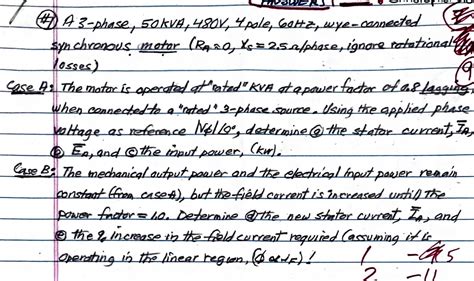 (#1) A 3-phase, 50KVA, 480V, 4 pole, 60Hz, wye-connected
synchronous motor (RA≈0, Xs = 2.5 Ω/phase, ignore rotational
losses)
Case A: The motor is operated at "rated" KVA at a power factor of 0.8 lagging,
when connected to a "rated" 3-phase source. Using the applied phase
voltage as reference Vφ/0°, determine ⓐ the stator current, IA,
ⓑ EA, and ⓒ the input power, (kw).
Case B: The mechanical output power and the electrical input power remain
constant (from case A), but the field current is increased until the
power factor = 1.0. Determine ⓓ the new stator current, IA, and
ⓔ the % increase in the field current required (assuming it is
operating in the linear region, (φ α IF)!